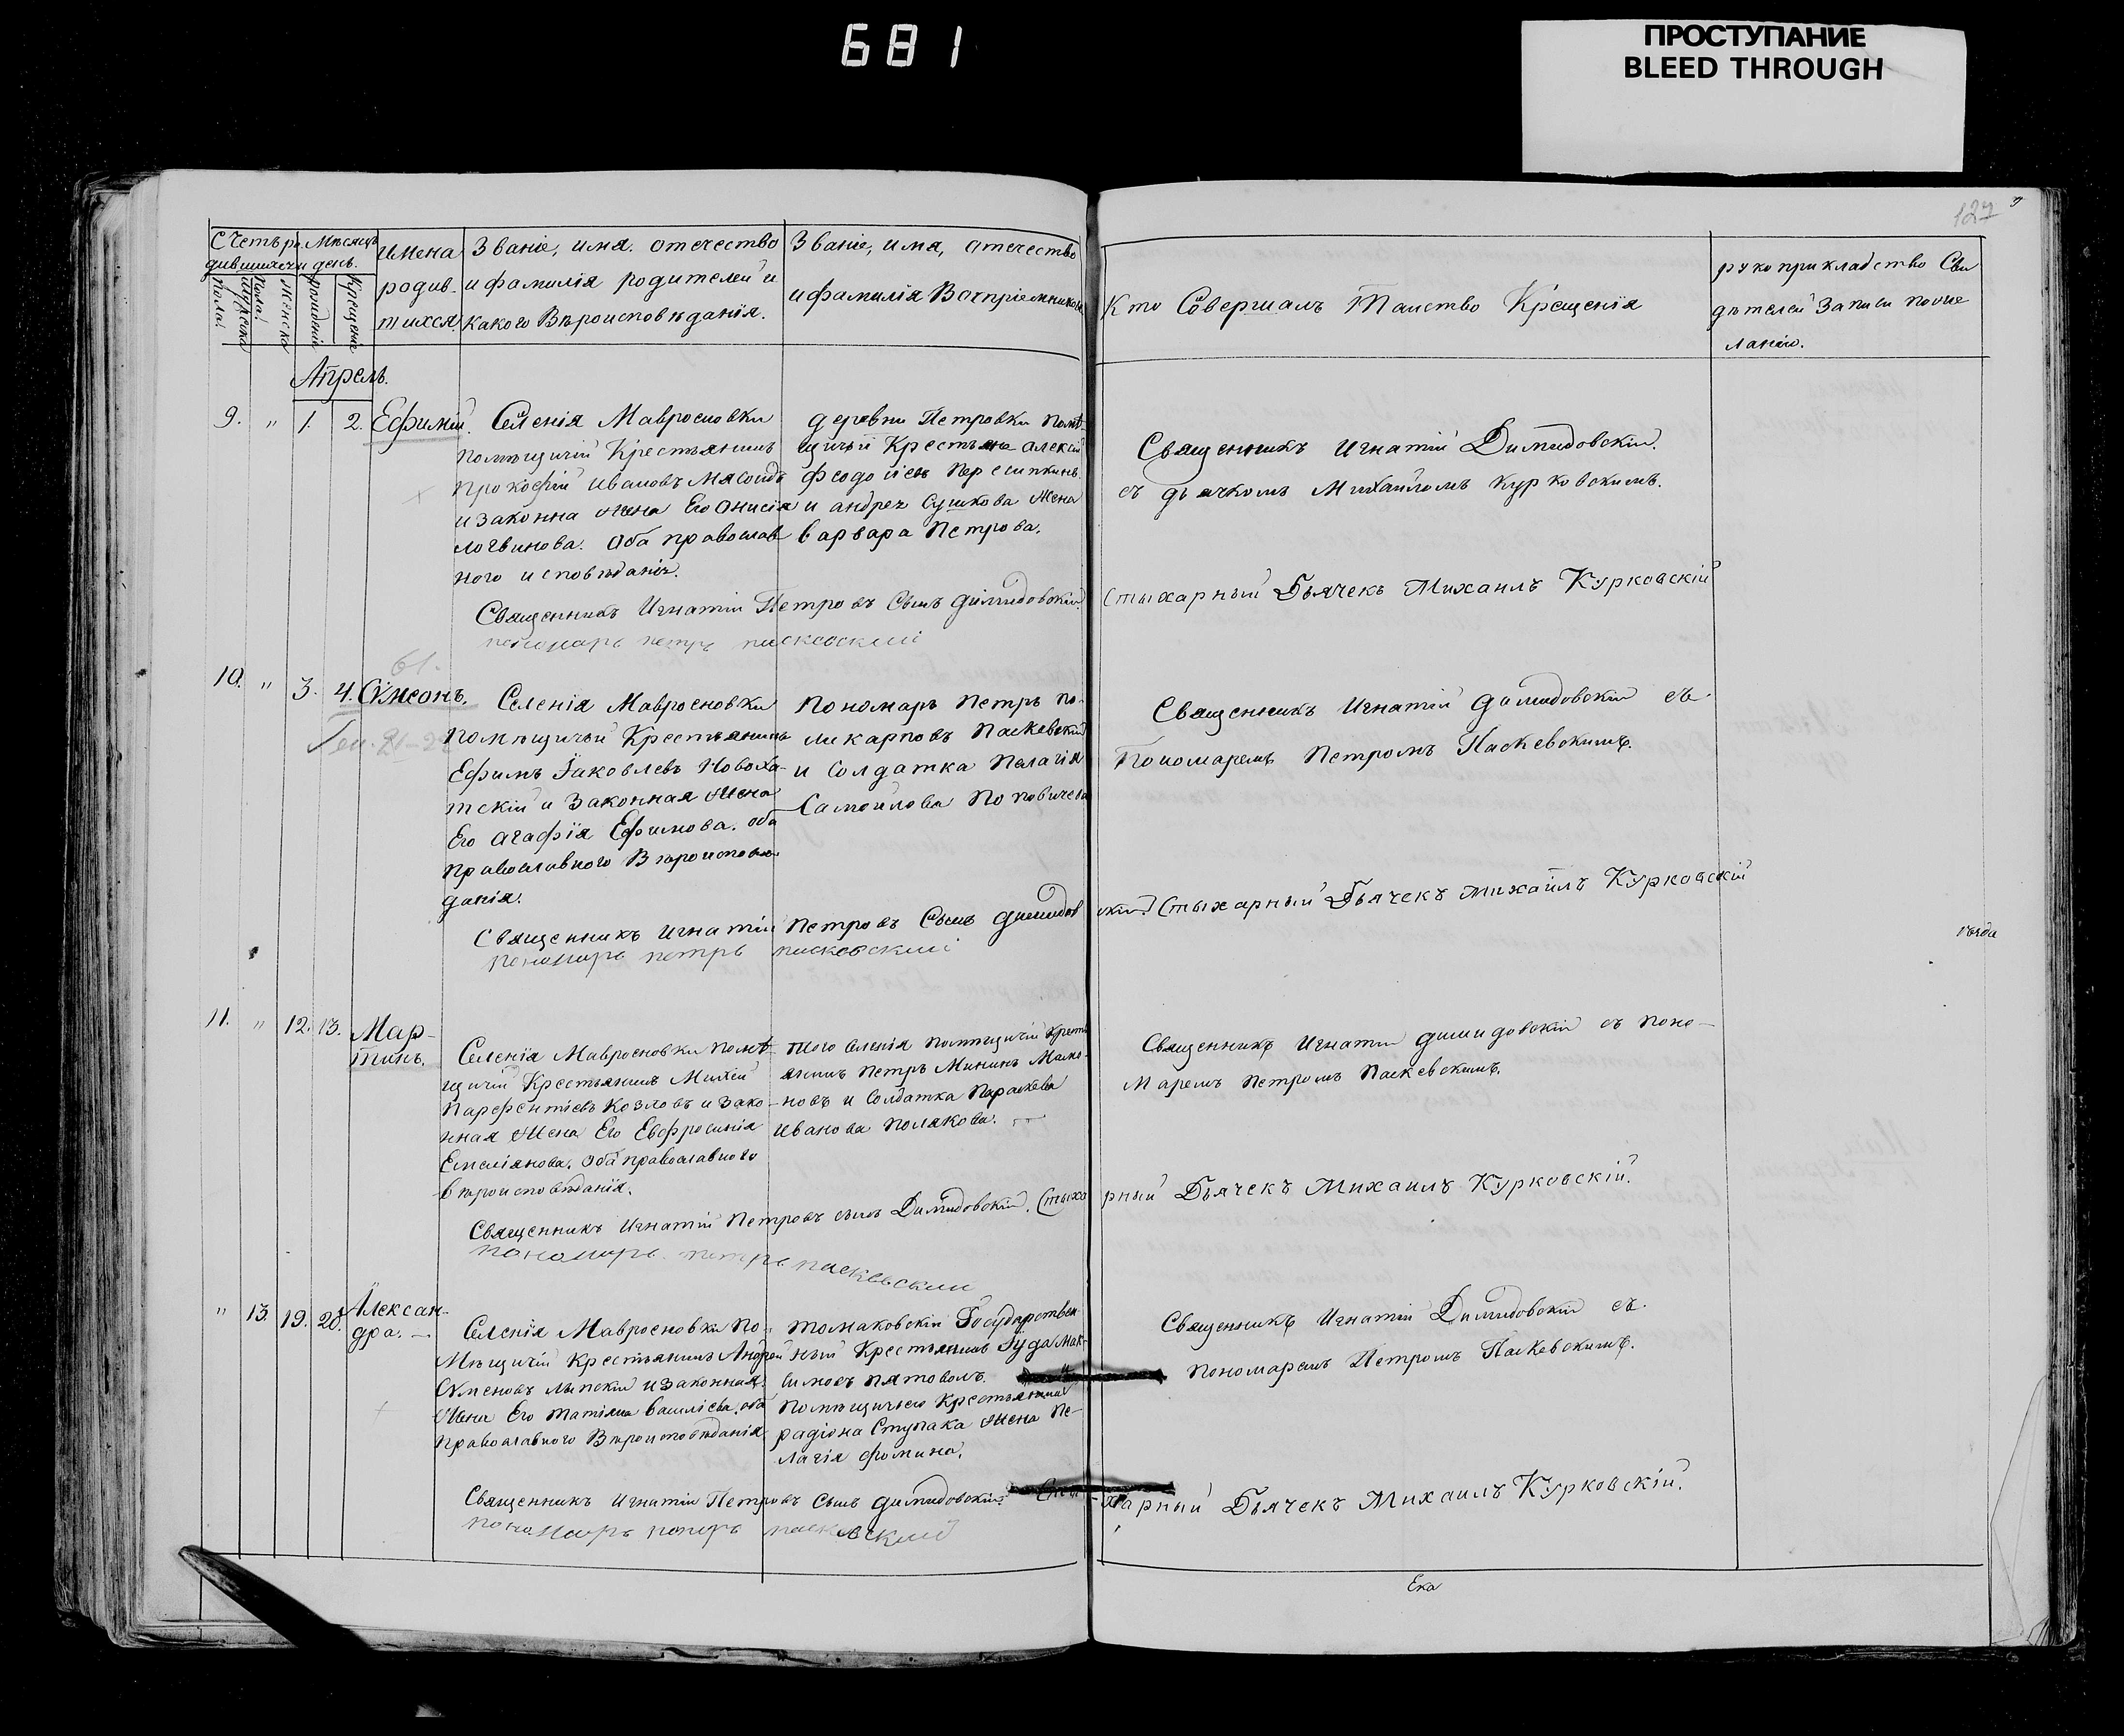 681
ПРОСТУПАНИЕ
BLEED THROUGH
127
Счетъ ро
дившихся
Мѣсяцъ
и день.
Мужеска
пола.
Женска
пола.
рожденія
Крещенія
Имена
родив-
шихся.
Званіе, имя. отечество
и фамилія родителей и
какого Вѣроисповѣданія.
Званіе, имя, отечество
и фамилія Воспріемниковъ
Кто Совершалъ Таинство Крещенія
рукоприкладство Сви
дѣтелей Записи по же
ланію.
Апрель.
9. " 1. 2. Ефимій.
Селенія Мавросновки
помѣщичій Крестьянинъ
Прокофій Ивановъ Мясоидъ
и законна жена Его Онисія
логвинова. Оба православ
ного исповѣданія.
деревни Петровки помѣ-
щичій Крестьяне алексій
феодосіевъ Пересипкинъ
и андрея Сушкова жена
варвара Петрова.
Священникъ Игнатій Димидовскій.
съ дьячкомъ Михайломъ Курковскимъ.
Священникъ Игнатій Петровъ Сынъ Димидовскій
Стыхарный Дьячекъ Михаилъ Курковскій
пономарь петръ паскевскій
61.
10. " 3. 4. Симеонъ.
Селенія Мавросновки
помѣщичій Крестьянинъ
Ефимъ Іаковлевъ Новоха-
тскій и Законная жена
Его агафія Ефимова. оба
православного Вѣроисповѣ
данія.
Пономарь Петръ По-
ликарповъ Паскевскій
и Солдатка Пелагія
Самойлова Поповичева
Священникъ Игнатій Димидовскій съ
Пономаремъ Петромъ Паскевскимъ.
Священникъ Игнатій Петровъ Сынъ Димидов
скій. Стыхарный Дьячекъ Михаилъ Курковскій
пономарь петръ паскевскій
11. " 12. 13. Мар-
тинъ.
Селенія Мавросновки помѣ-
щичій Крестьянинъ Михей
Парфентіевъ Козловъ и зако-
нная жена Его Евфросинія
Емеліянова. Оба православного
вѣроисповѣданія.
того селенія помѣщичій крест
янинъ Петръ Мининъ Мамо-
новъ и Солдатка Параскева
Иванова Полякова.
Священникъ Игнатій Димидовскій съ поно-
маремъ Петромъ Паскевскимъ.
Священникъ Игнатій Петровъ сынъ Димидовскій. Стыха
рный Дьячекъ Михаилъ Курковскій.
пономарь петръ паскевскій
" 13. 19. 20. Алексан-
дра.
Селенія Мавросновки по-
мѣщичій Крестьянинъ Андрей
Семеновъ липскій и законная
жена Его татіяна василіева. оба
православного Вѣроисповѣданія
томаковскій Государствен-
ный Крестьянинъ Іуда Мак-
симовъ пятоволъ. и
помѣщичьего Крестьянина
радіона Ступака жена Пе-
лагія фомина.
Священникъ Игнатій Димидовскій съ
пономаремъ Петромъ Паскевскимъ.
Священникъ Игнатій Петровъ Сынъ Димидовскій. Сты
харный Дьячекъ Михаилъ Курковскій.
пономарь петръ паскевскій
Ека